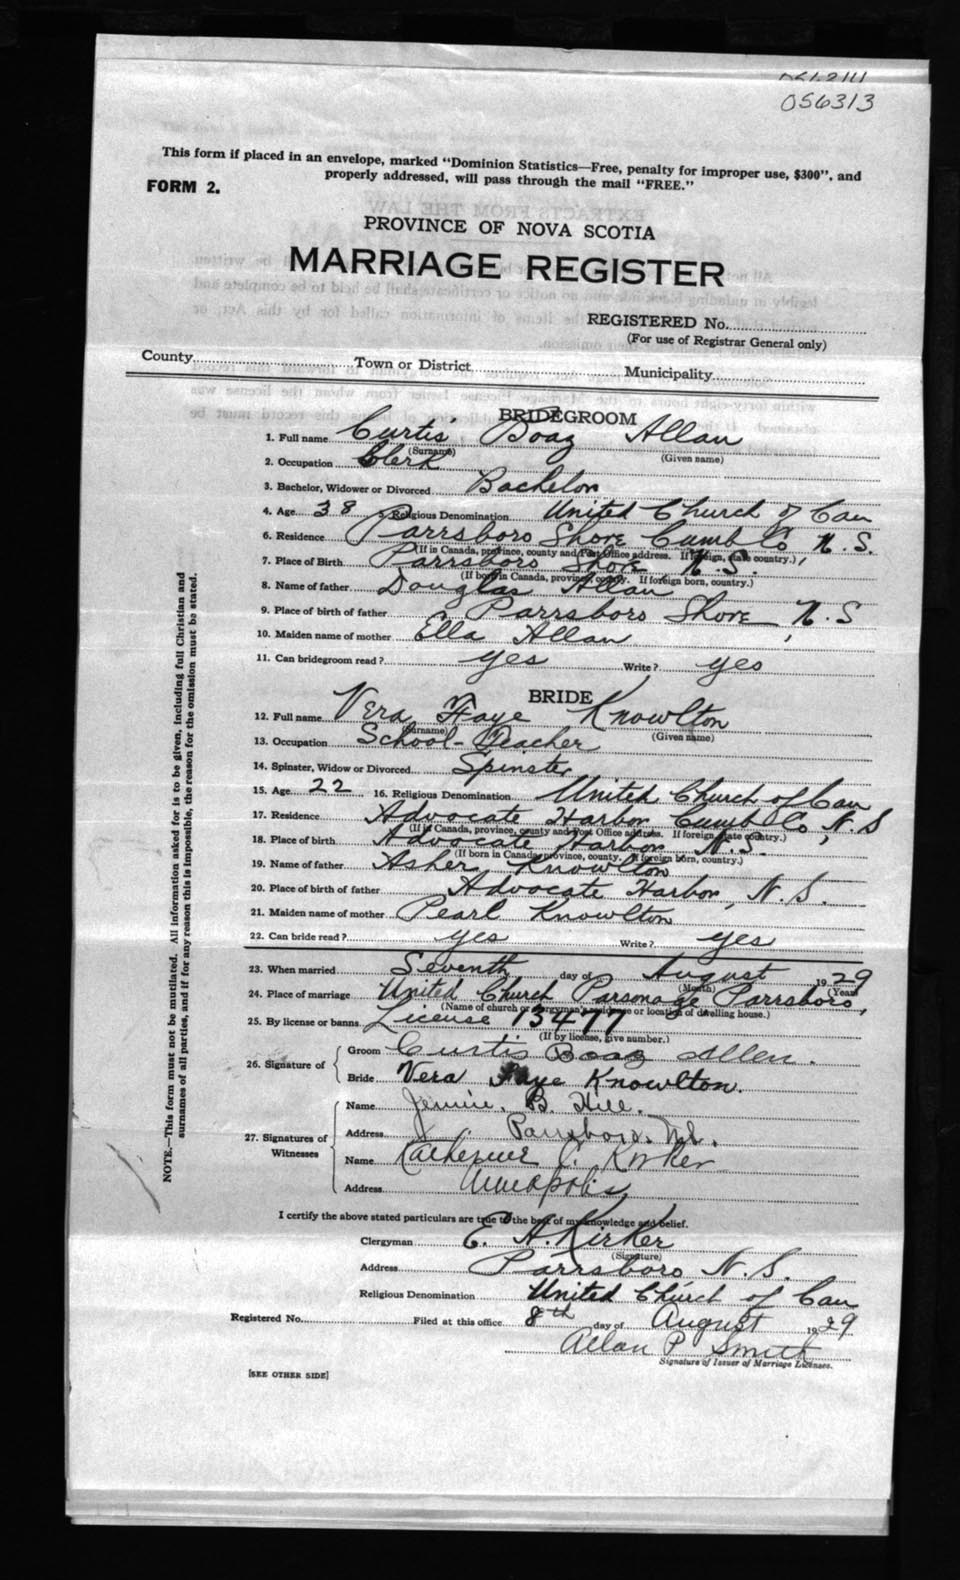 056313
This form if placed in an envelope, marked "Dominion Statistics—Free, penalty for improper use, $300", and
properly addressed, will pass through the mail "FREE."
FORM 2.
PROVINCE OF NOVA SCOTIA
MARRIAGE REGISTER
REGISTERED No.
(For use of Registrar General only)
County Town or District Municipality
BRIDEGROOM
1. Full name Curtis Boaz Allan
(Surname) (Given name)
2. Occupation Clerk
3. Bachelor, Widower or Divorced Bachelor
4. Age 38 5. Religious Denomination United Church of Can
6. Residence Parrsboro Shore Cumb Co, N.S.
(If in Canada, province, county and Post Office address. If foreign, state country.)
7. Place of Birth Parrsboro Shore, N.S.
(If born in Canada, province, county. If foreign born, country.)
8. Name of father Douglas Allan
9. Place of birth of father Parrsboro Shore, N.S
10. Maiden name of mother Ella Allan
11. Can bridegroom read? yes Write? yes
BRIDE
12. Full name Vera Faye Knowlton
(Surname) (Given name)
13. Occupation School-Teacher
14. Spinster, Widow or Divorced Spinster
15. Age 22 16. Religious Denomination United Church of Can
17. Residence Advocate Harbor Cumb Co, N.S
(If in Canada, province, county and Post Office address. If foreign state country.)
18. Place of birth Advocate Harbor N.S.
(If born in Canada, province, county. If foreign born, country.)
19. Name of father Asher Knowlton
20. Place of birth of father Advocate Harbor, N.S.
21. Maiden name of mother Pearl Knowlton
22. Can bride read? yes Write? yes
23. When married Seventh day of August 1929
(Month) (Year)
24. Place of marriage United Church Parsonage Parrsboro,
(Name of church or clergyman's residence or location of dwelling house.)
25. By license or banns License 13477
(If by license, give number.)
26. Signature of Groom Curtis Boaz Allen.
Bride Vera Faye Knowlton.
27. Signatures of Witnesses
Name Jennie. B. Hill.
Address Parrsboro. N.S.
Name Katherine C. Kirker
Address Annapolis
I certify the above stated particulars are true to the best of my knowledge and belief.
Clergyman E. A. Kirker
(Signature)
Address Parrsboro N.S.
Religious Denomination United Church of Can
Registered No. Filed at this office 8th day of August 1929
Allan P Smith
Signature of Issuer of Marriage Licenses.
[SEE OTHER SIDE]
NOTE.—This form must not be mutilated. All information asked for is to be given, including full Christian and
surnames of all parties, and if for any reason this is impossible, the reason for the omission must be stated.